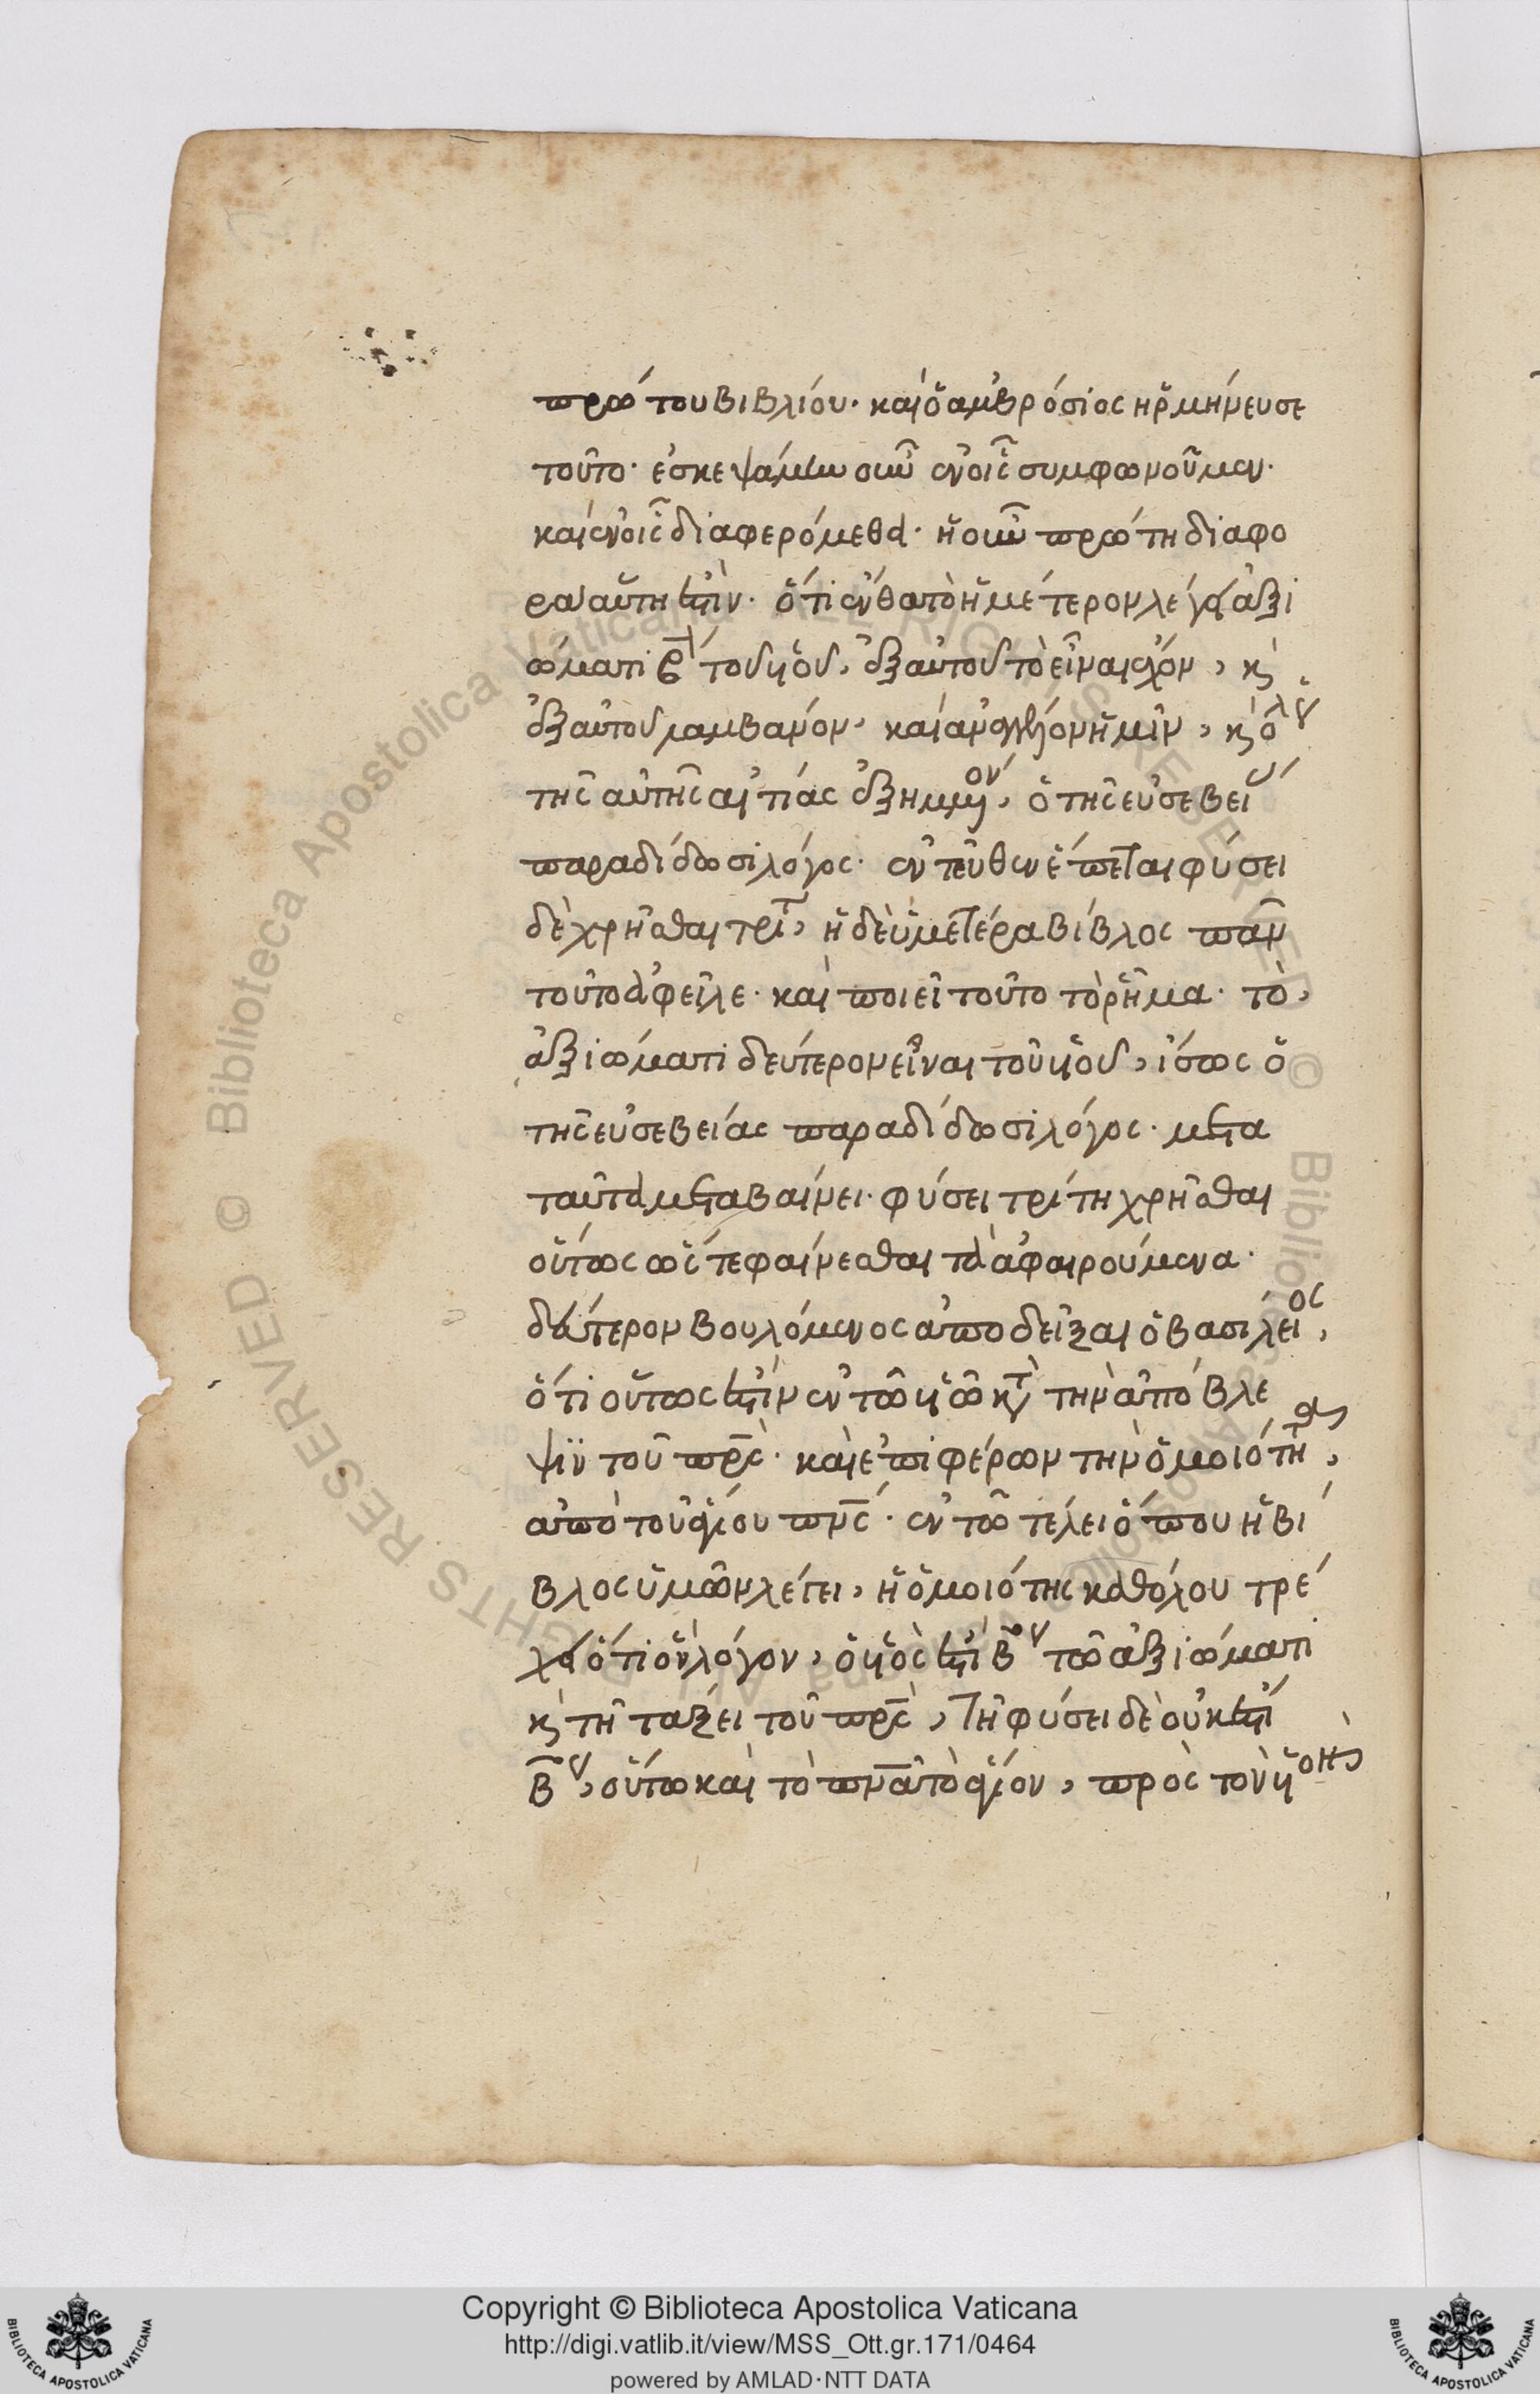 πρώτου βιβλίου· καὶ ὁ ἀμβρόσιος ἡρμήνευσε
τοῦτο· ἐσκεψάμην οὖν ἐν οἷς συμφωνοῦμεν·
καὶ ἐν οἷς διαφερόμεθα· ἡ οὖν πρώτη διαφο
ρα αὕτη ἐστὶν· ὅτι ἔνθα τὸ ἡμέτερον λέγει ἀξι
ώματι τοῦ υἱοῦ, ἐξ αὐτοῦ τὸ εἶναι ἔχον, κ
ἐξ αὐτοῦ λαμβανόν, καὶ ἀναγγέλον ἡμῖν, κ ὁλου
τῆς αὐτῆς αἰτίας ἐξημμένον, ὁ τῆς εὐσεβεί
παραδίδωσι λόγος· ἐντεῦθεν ἕπεται φύσει
δὲ χρῆσθαι τρίτ, ἡ δὲ ὑμετέρα βίβλος πᾶν
τοῦτο ἀφεῖλε· καὶ ποιεῖ τοῦτο τὸ ρῆμα· τὸ,
ἀξιώματι δεύτερον εἶναι τοῦ υἱοῦ, ἴσως ὁ
τῆς εὐσεβείας παραδίδωσι λόγος· μετα
ταῦτα μεταβαίνει· φύσει τρίτη χρῆσθαι
οὕτως ὥστε φαίνεσθαι τὰ ἀφαιρούμενα·
δεύτερον βουλόμενος ἀποδεῖξαι ὁ βασίλειος,
ὅτι οὕτως ἐστὶν ἐν τῶ υἱῶ κτ τὴν ἀπόβλε
ψϊν τοῦ πρς· καὶ ἐπιφέρων τὴν ὁμοιότητα,
ἀπὸ τοῦ ἁγίου πνς· ἐν τῶ τέλει ὅπου ἡ βί
βλος ὑμῶν λέγει, ἡ ὁμοιότης καθόλου τρέ
χει ὅτι ὃν λόγον, ὁ υἱὸς ἐστὶ βου τῶ ἀξιώματι
κ τῆ τάξει τοῦ πρς, τῆ φύσει δὲ οὐκ ἐστὶ
βου, οὕτω καὶ τὸ πνα τὸ ἅγιον, πρὸς τὸν υἱὸν
Copyright © Biblioteca Apostolica Vaticana
http://digi.vatlib.it/view/MSS_Ott.gr.171/0464
powered by AMLAD·NTT DATA